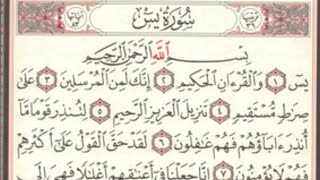 سُورَةُ يسٓ
بِسْمِ ٱللَّهِ ٱلرَّحْمَٰنِ ٱلرَّحِيمِ
يسٓ ١ وَٱلْقُرْءَانِ ٱلْحَكِيمِ ٢ إِنَّكَ لَمِنَ ٱلْمُرْسَلِينَ ٣ عَلَىٰ
صِرَٰطٍ مُّسْتَقِيمٍ ٤ تَنزِيلَ ٱلْعَزِيزِ ٱلرَّحِيمِ ٥ لِتُنذِرَ قَوْمًا مَّآ
أُنذِرَ ءَابَآؤُهُمْ فَهُمْ غَٰفِلُونَ ٦ لَقَدْ حَقَّ ٱلْقَوْلُ عَلَىٰٓ أَكْثَرِهِمْ
فَهُمْ لَا يُؤْمِنُونَ ٧ إِنَّا جَعَلْنَا فِىٓ أَعْنَٰقِهِمْ أَغْلَٰلًا فَهِىَ إِلَى